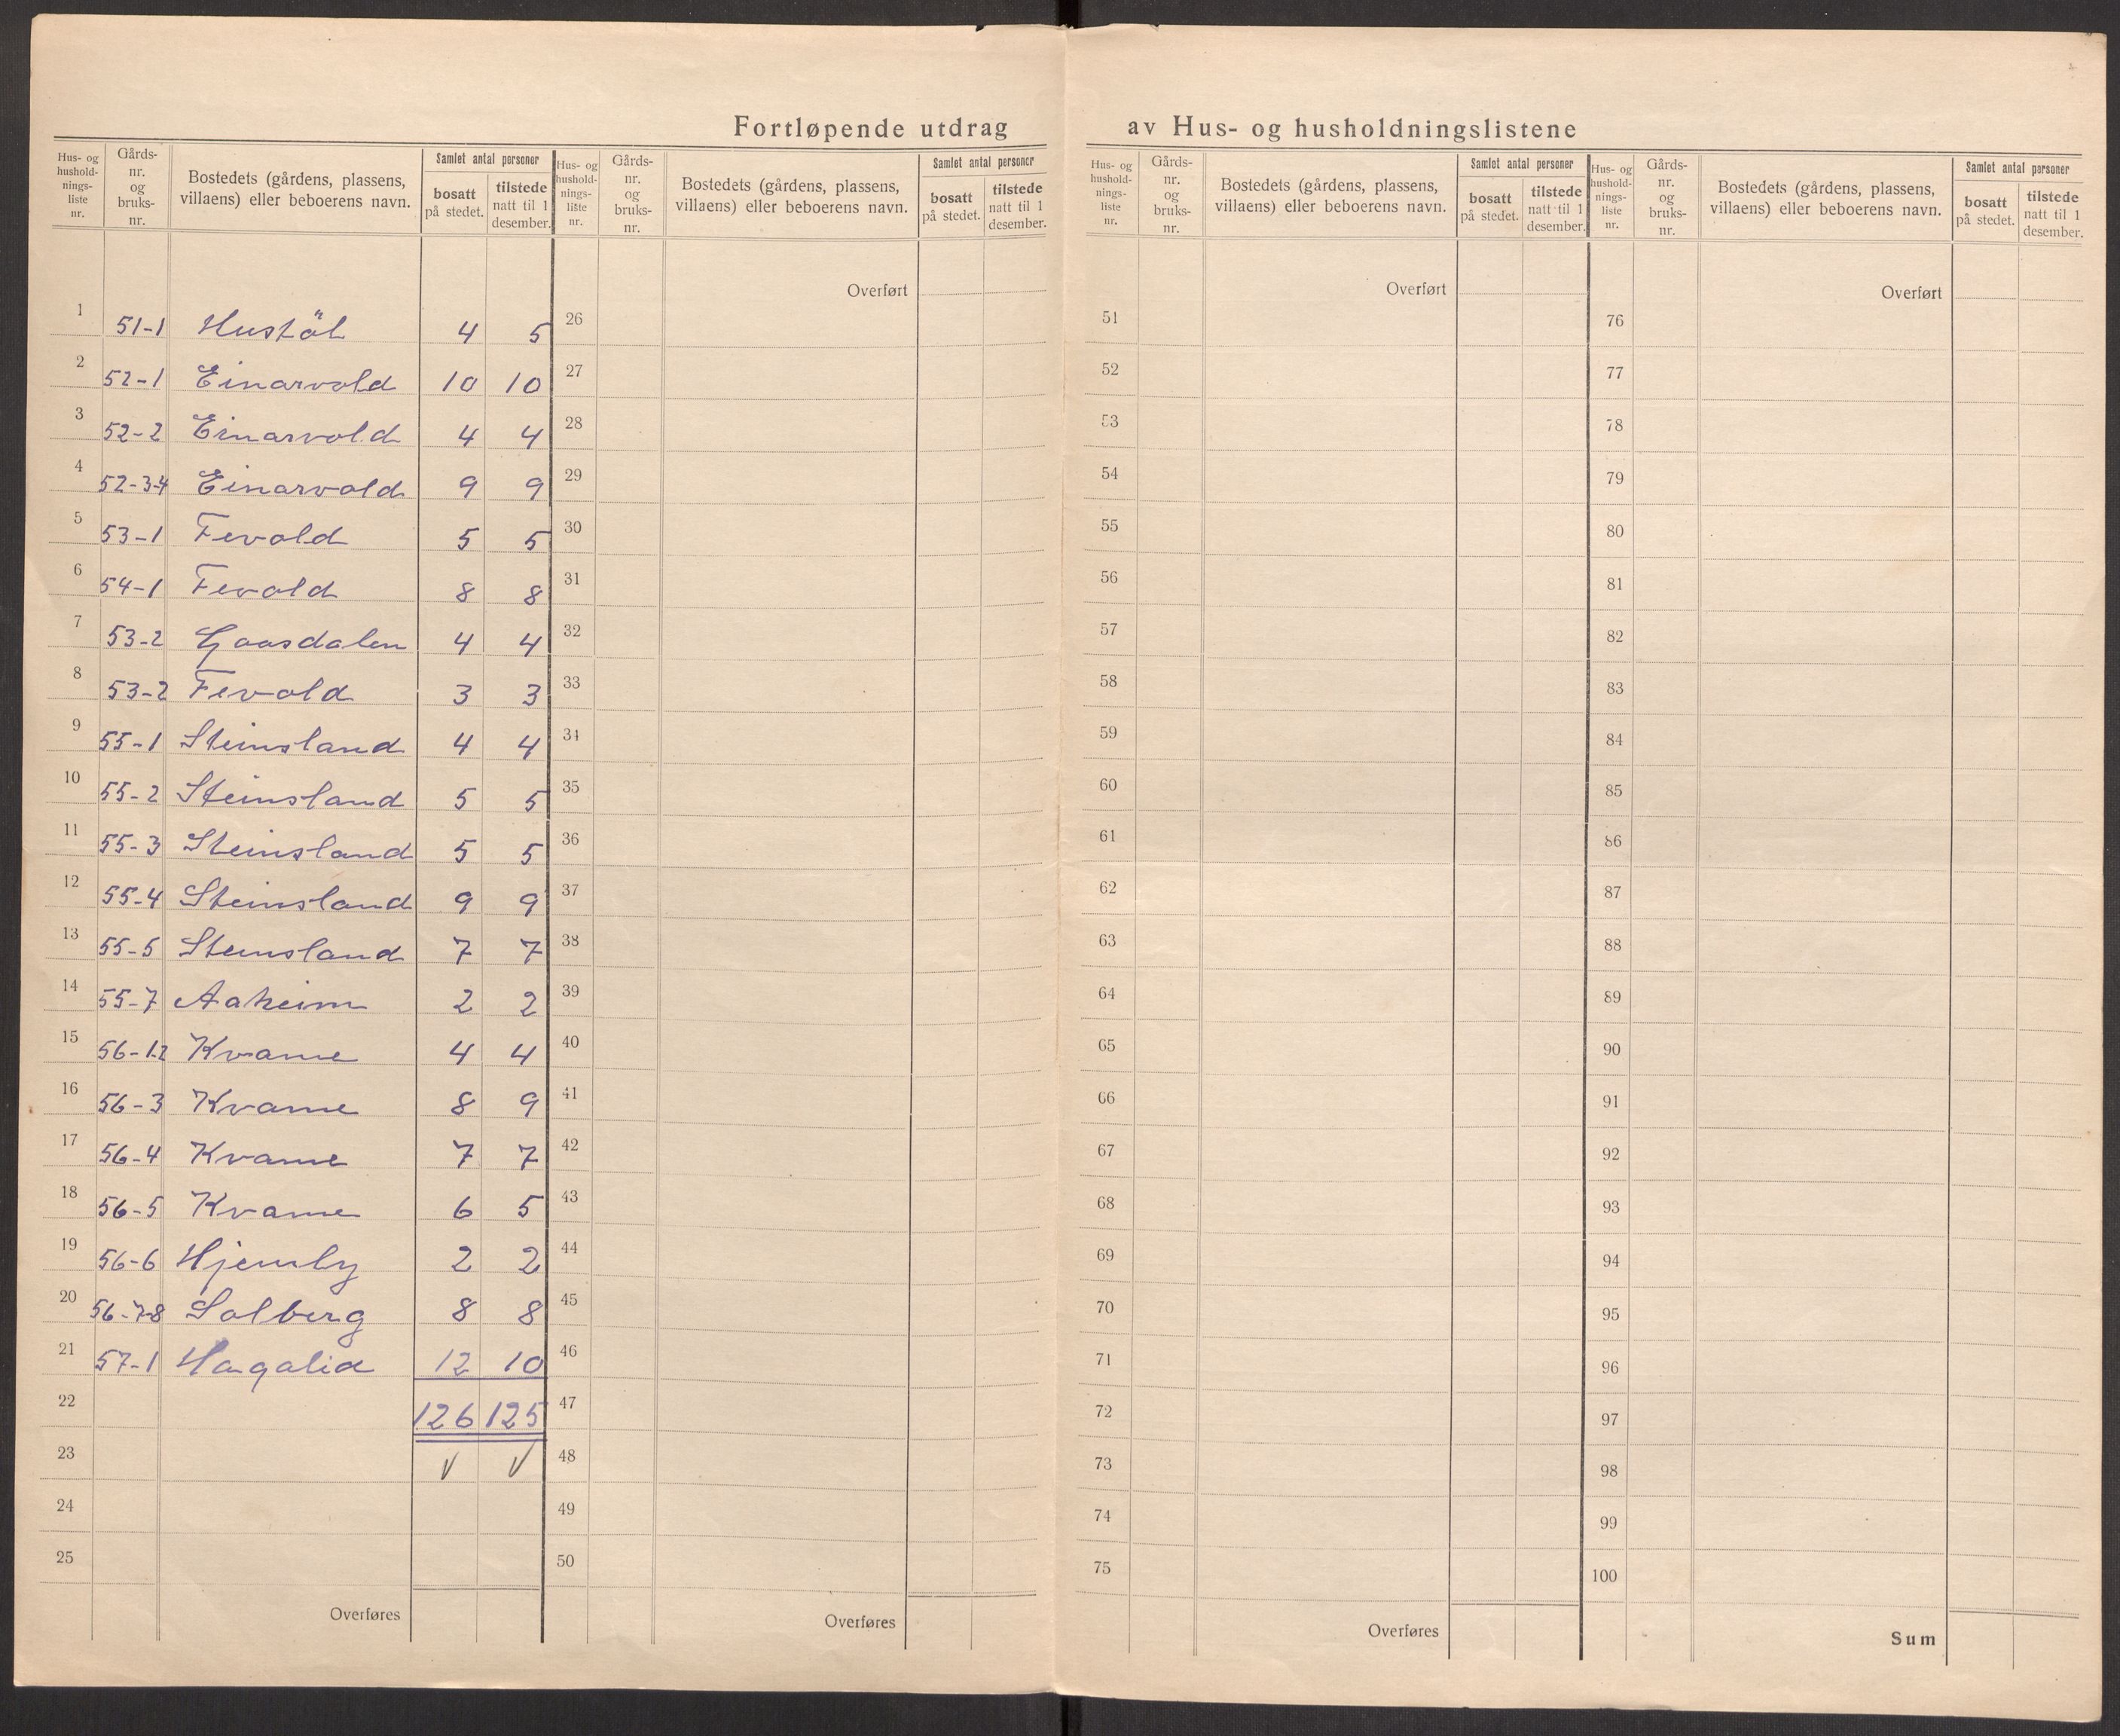 Fortløpende utdrag av Hus- og husholdningslistene
Hus- og hushold-nings-liste nr. Gårds-nr. og bruks-nr. Bostedets (gårdens, plassens, villaens) eller beboerens navn. Samlet antal personer bosatt på stedet. tilstede natt til 1 desember.
1 51-1 Hustöl 4 5
2 52-1 Einarvold 10 10
3 52-2 Einarvold 4 4
4 52-3-4 Einarvold 9 9
5 53-1 Fevold 5 5
6 54-1 Fevold 8 8
7 53-2 Gaasdalen 4 4
8 53-2 Fevold 3 3
9 55-1 Steinsland 4 4
10 55-2 Steinsland 5 5
11 55-3 Steinsland 5 5
12 55-4 Steinsland 9 9
13 55-5 Steinsland 7 7
14 55-7 Aaheim 2 2
15 56-1-2 Kvame 4 4
16 56-3 Kvame 8 9
17 56-4 Kvame 7 7
18 56-5 Kvame 6 5
19 56-6 Hjemby 2 2
20 56-7-8 Solberg 8 8
21 57-1 Hagalid 12 10
22 126 125
23 √ √
24
25
Overføres
Hus- og hushold-nings-liste nr. Gårds-nr. og bruks-nr. Bostedets (gårdens, plassens, villaens) eller beboerens navn. Samlet antal personer bosatt på stedet. tilstede natt til 1 desember.
Overført
26
27
28
29
30
31
32
33
34
35
36
37
38
39
40
41
42
43
44
45
46
47
48
49
50
Overføres
Hus- og hushold-nings-liste nr. Gårds-nr. og bruks-nr. Bostedets (gårdens, plassens, villaens) eller beboerens navn. Samlet antal personer bosatt på stedet. tilstede natt til 1 desember.
Overført
51
52
53
54
55
56
57
58
59
60
61
62
63
64
65
66
67
68
69
70
71
72
73
74
75
Overføres
Hus- og hushold-nings-liste nr. Gårds-nr. og bruks-nr. Bostedets (gårdens, plassens, villaens) eller beboerens navn. Samlet antal personer bosatt på stedet. tilstede natt til 1 desember.
Overført
76
77
78
79
80
81
82
83
84
85
86
87
88
89
90
91
92
93
94
95
96
97
98
99
100
Sum